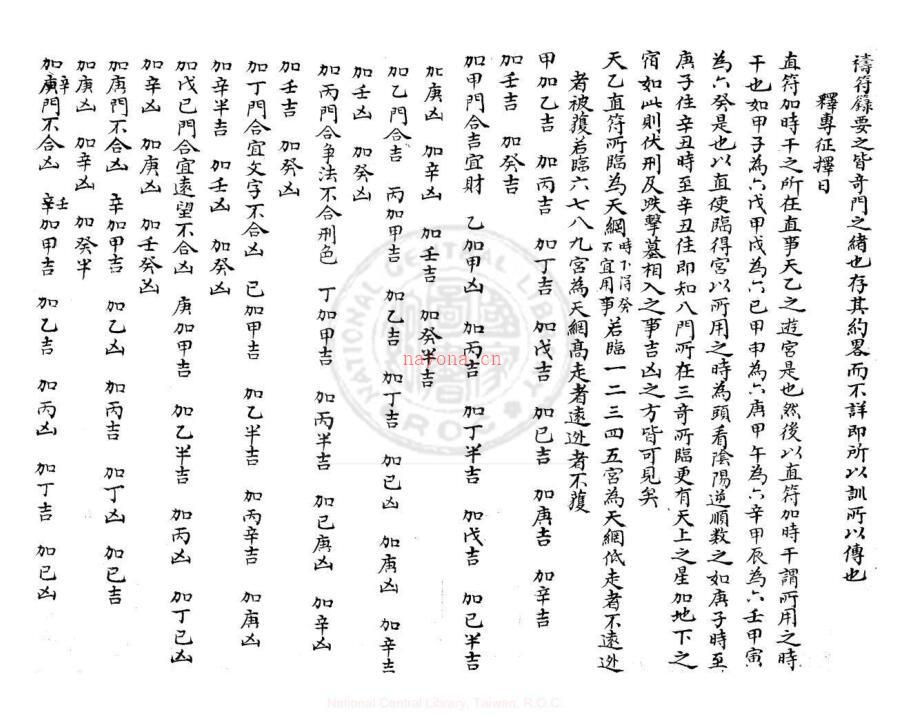 禱符籙要之皆奇門之緒也存其約畧而不詳即所以訓所以傳也
釋專征擇日
直符加時干之所在直事天乙之遊宮是也然後以直符加時干謂所用之時
干也如甲子為六戊甲戌為六己甲申為六庚甲午為六辛甲辰為六壬甲寅
為六癸是也以直使臨得宮以所用之時為頭看陰陽逆順数之如庚子時至
庚子住辛丑時至辛丑住即知八門所在三奇所臨更有天上之星加地下之
宿如此則伏刑反墣擊墓相入之事吉凶之方皆可見矣
天乙直符所臨為天網時下得癸不宜用事若臨一二三四五宮為天網低走者不遠迯
者被獲若臨六七八九宮為天網高走者遠迯者不獲
甲加乙吉 加丙吉 加丁吉 加戊吉 加己吉 加庚吉 加辛吉
加壬吉 加癸吉
加甲門合吉宜財 乙加甲凶 加丙吉 加丁半吉 加戊吉 加己半吉
加庚凶 加辛凶 加壬吉 加癸半吉
加乙門合吉 丙加甲吉 加乙吉 加丁吉 加己凶 加庚凶 加辛吉
加壬凶 加癸凶
加丙門合争法不合刑色 丁加甲吉 加丙半吉 加己庚凶 加辛凶
加壬吉 加癸凶
加丁門合宜文字不合凶 己加甲吉 加乙半吉 加丙辛吉 加庚凶
加辛半吉 加壬凶 加癸凶
加戊己門合宜遠望不合凶 庚加甲吉 加乙半吉 加丙凶 加丁己凶
加辛凶 加庚凶 加壬癸凶
加庚門不合凶 辛加甲吉 加乙凶 加丙吉 加丁凶 加己吉
加庚凶 加辛凶 加癸半
加辛庚門不合凶 壬辛加甲吉 加乙吉 加丙凶 加丁吉 加己凶
nayona.cn
NATIONAL CENTRAL LIBRARY R.O.C.
National Central Library, Taiwan, R.O.C.